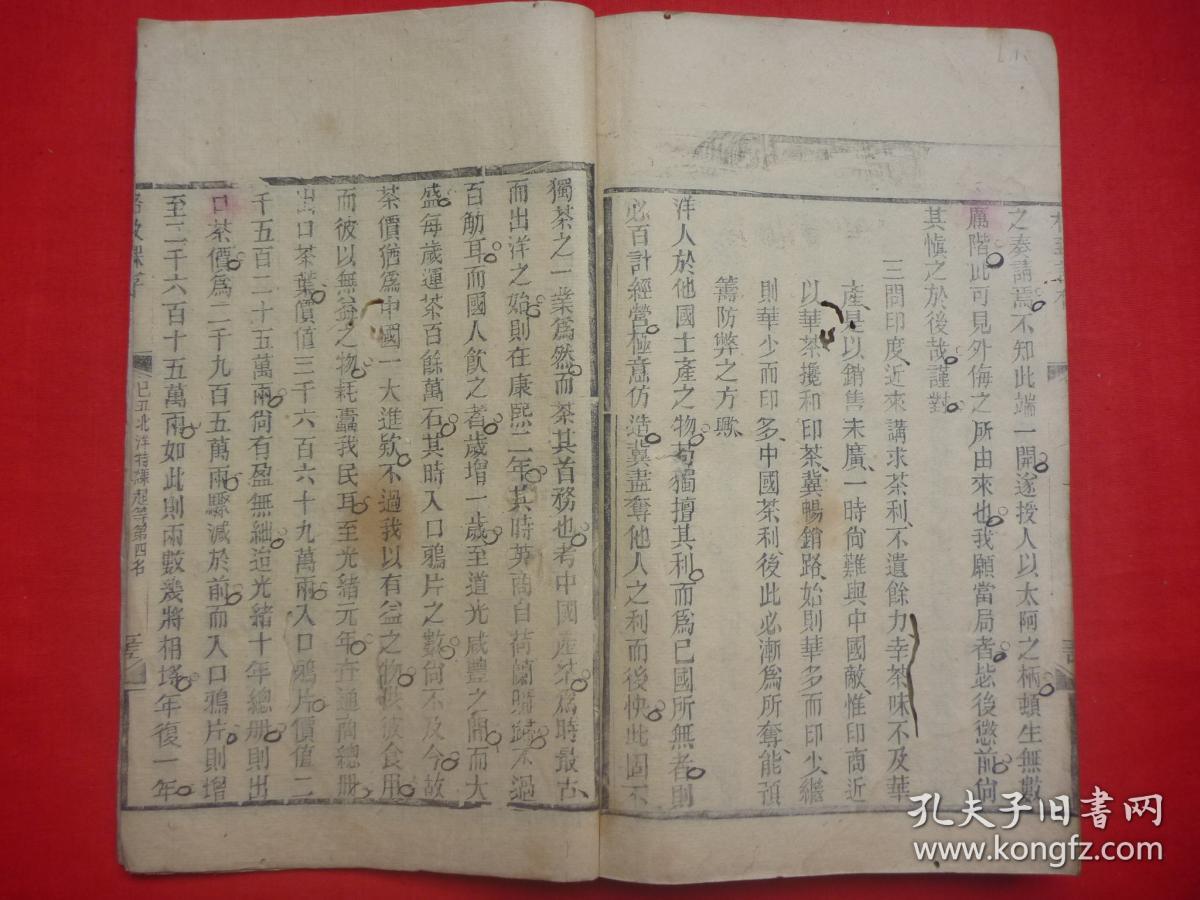 之奏請焉不知此端一開遂授人以太阿之柄頓生無數
厲階此可見外侮之所由來也我願當局者毖後懲前尙
其愼之於後哉謹對
三問印度近來講求茶利不遺餘力幸茶味不及華
產是以銷售未廣一時尙難與中國敵惟印商近
以華茶攙和印茶冀暢銷路始則華多而印少繼
則華少而印多中國茶利後此必漸爲所奪能預
籌防弊之方歟
洋人於他國土產之物苟獨擅其利而爲已國所無者則
必百計經營極意仿造冀盡奪他人之利而後快此固不
獨茶之一業爲然而茶其首務也考中國產茶爲時最古
而出洋之始則在康熙二年其時英商自荷蘭購歸不過
百觔耳而國人飲之者歲增一歲至道光咸豐之間而大
盛每歲運茶百餘萬石其時入口鴉片之數尙不及今故
茶價猶爲中國一大進欵不過我以有益之物供彼食用
而彼以無益之物耗蠹我民耳至光緒元年查通商總册
出口茶葉價值三千六百六十九萬兩入口鴉片價值二
千五百二十五萬兩尙有盈無絀迨光緒十年總册則出
口茶價爲二千九百五萬兩驟減於前而入口鴉片則增
至二千六百十五萬兩如此則兩數幾將相埒年復一年
格致課存
已丑北洋特課超等第四名
孔夫子旧书网
www.kongfz.com